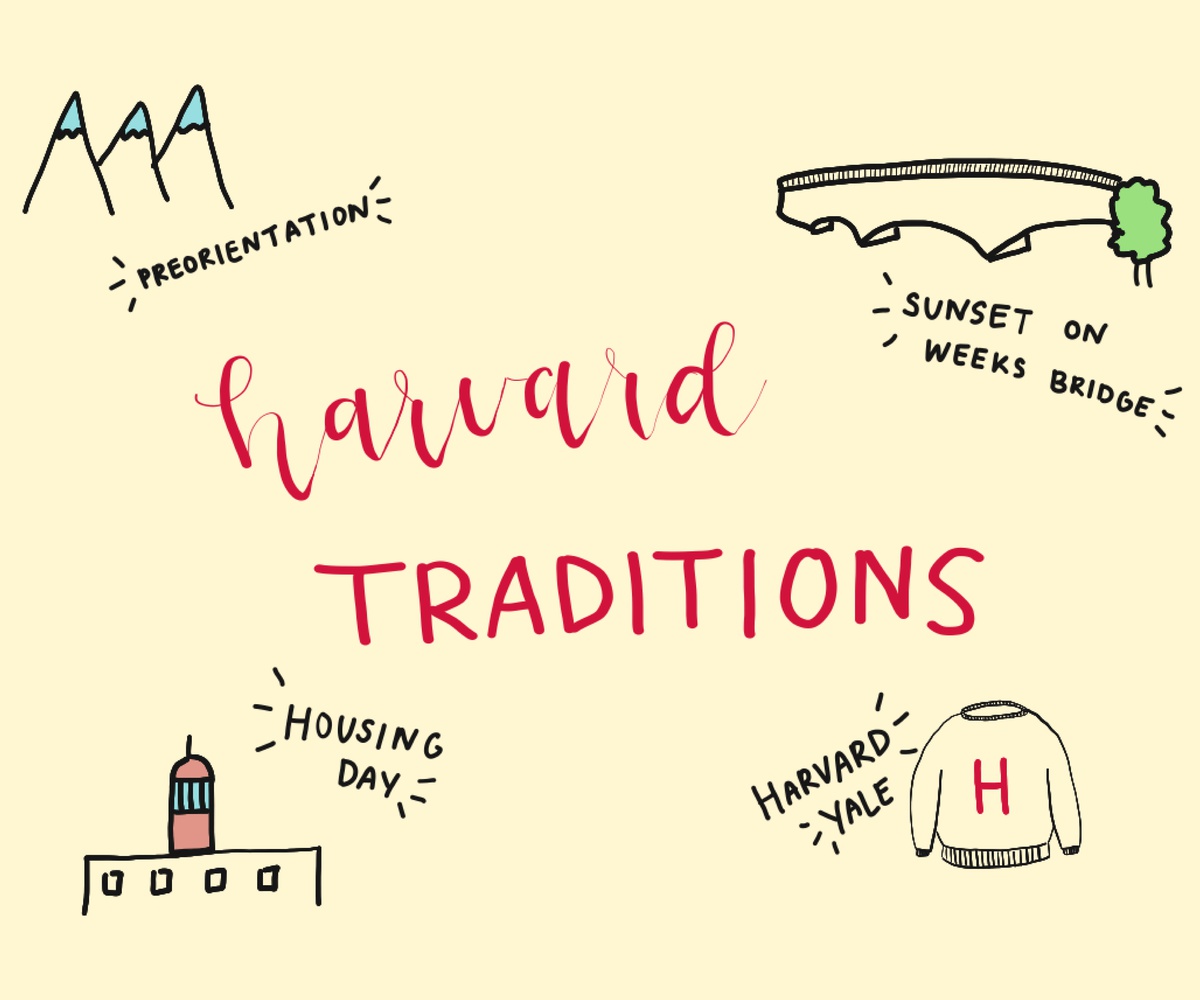 PREORIENTATION
SUNSET ON
WEEKS BRIDGE
harvard
TRADITIONS
HOUSING
DAY
HARVARD
YALE
H